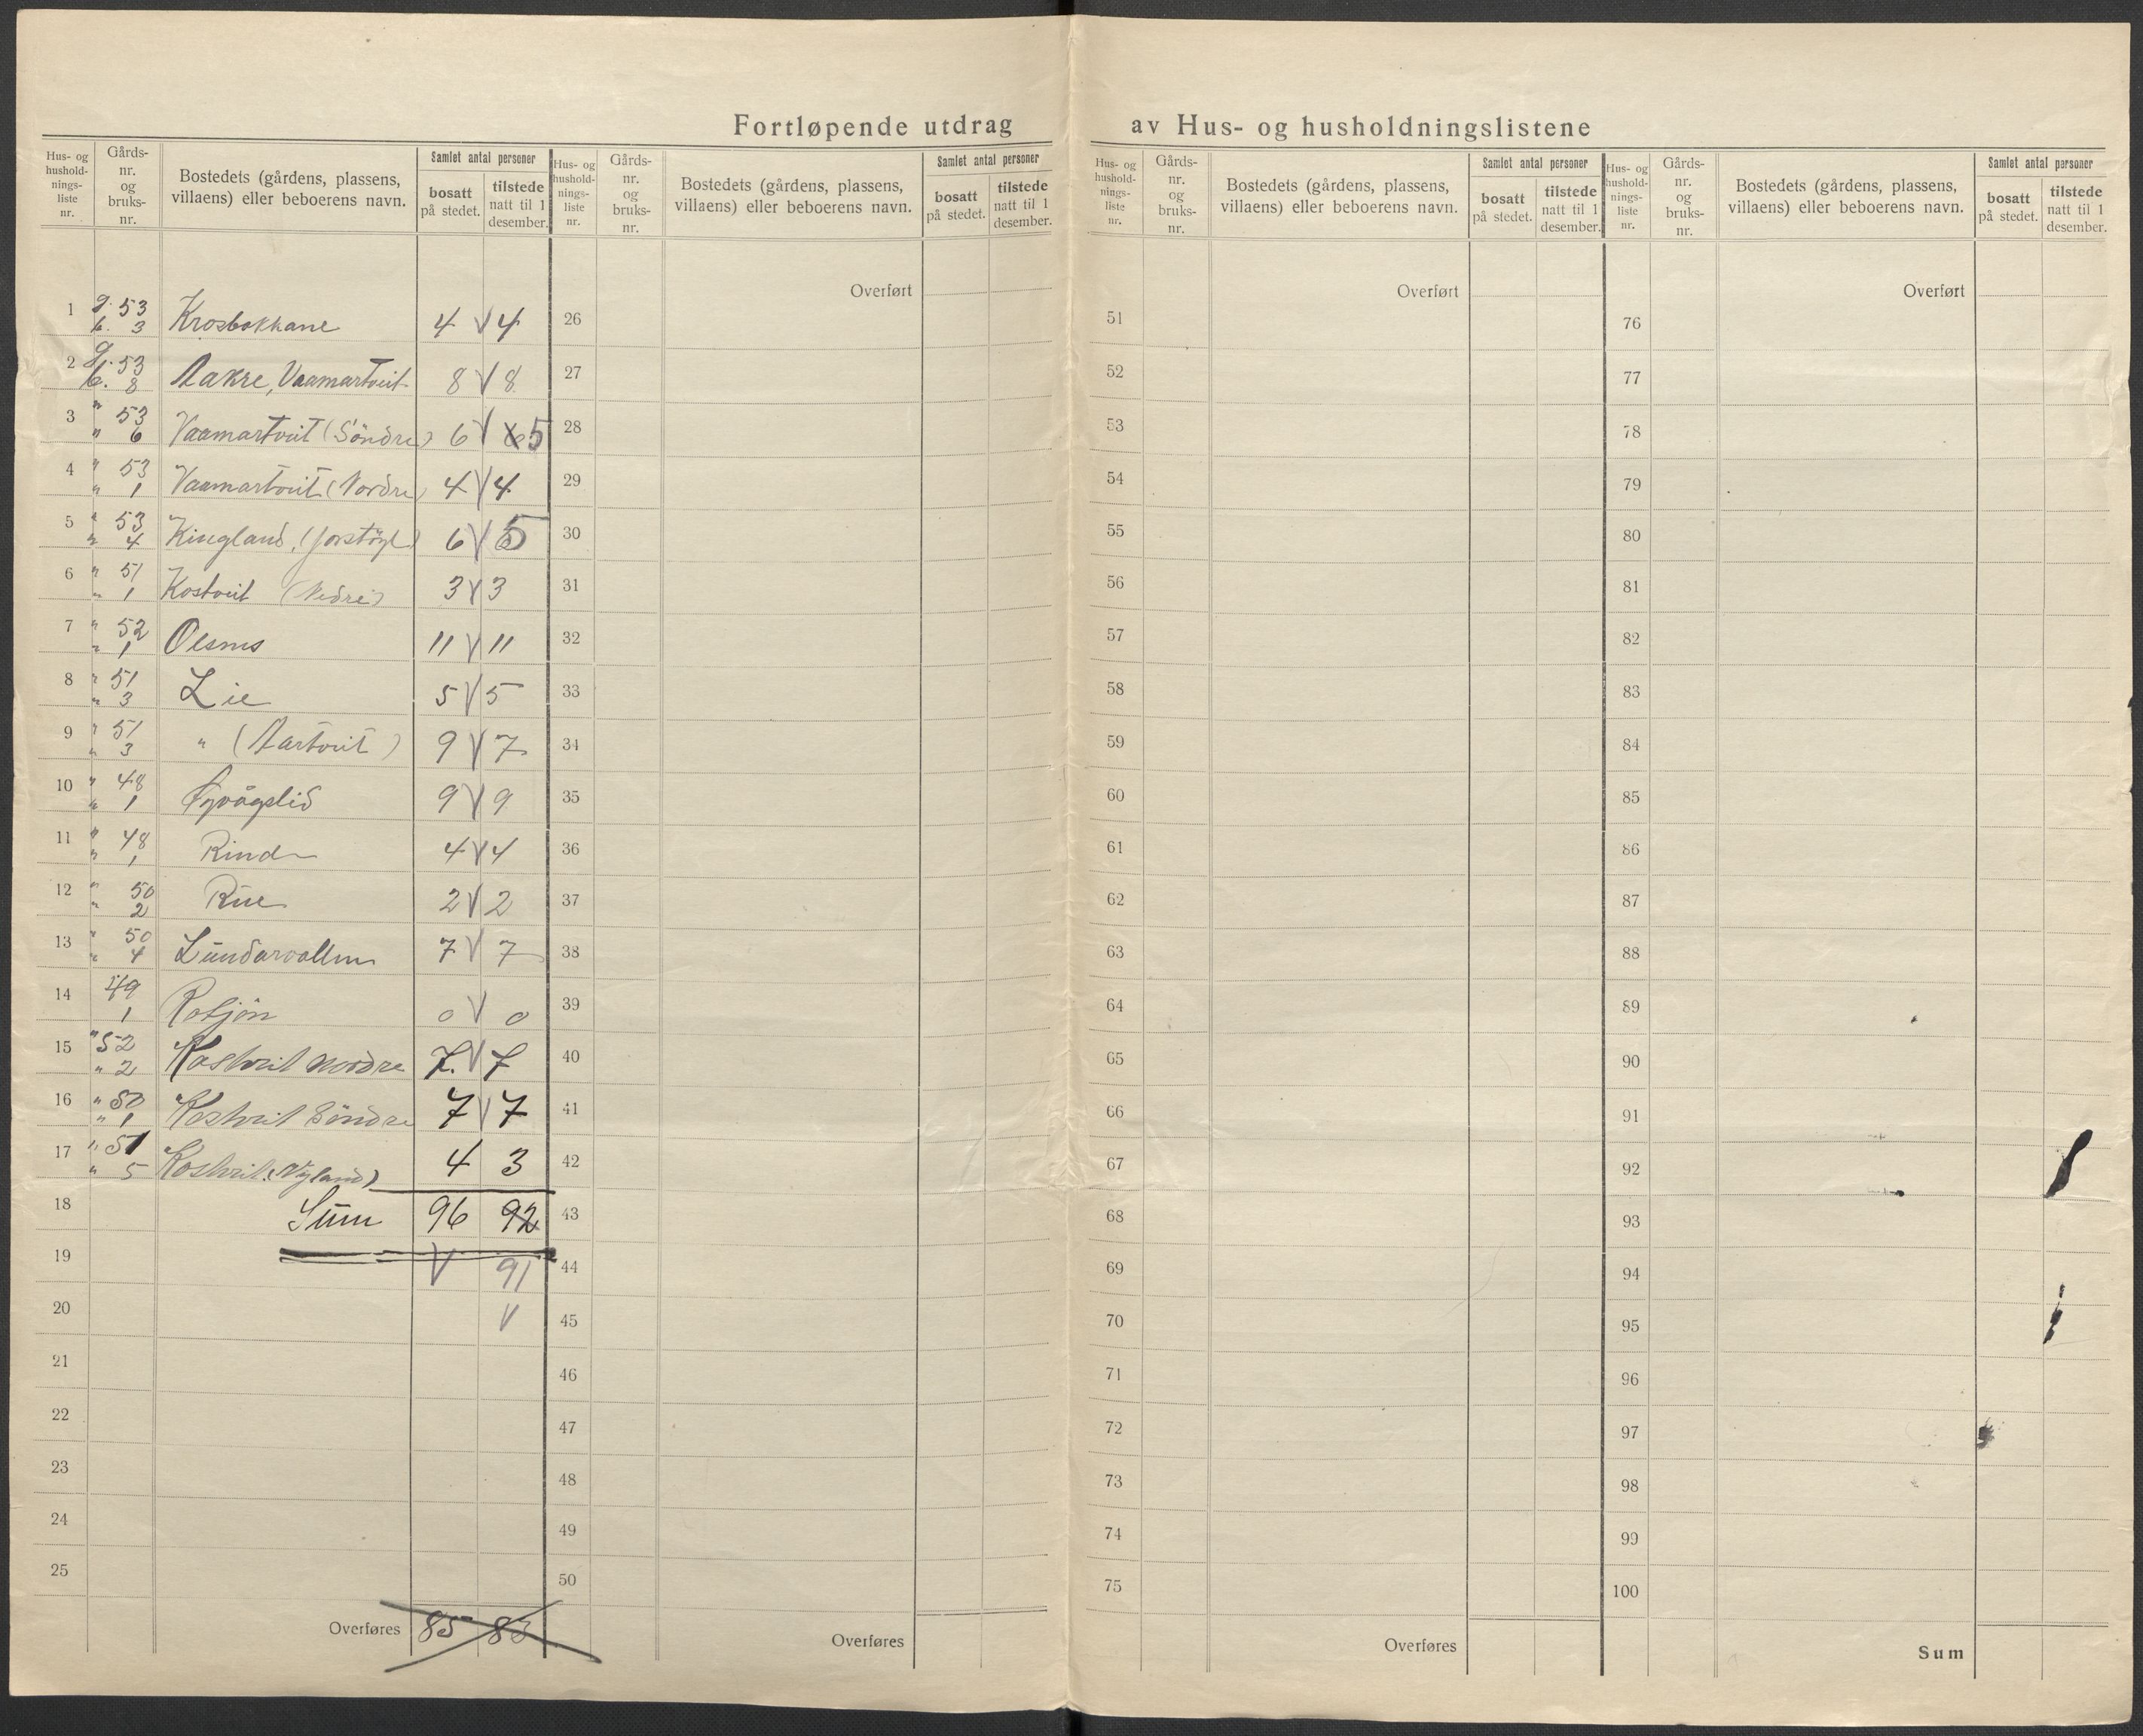 Fortløpende utdrag av Hus- og husholdningslistene
Hus- og hushold- nings- liste nr.
Gårds- nr. og bruks- nr.
Bostedets (gårdens, plassens, villaens) eller beboerens navn.
Samlet antal personer
bosatt på stedet.
tilstede natt til 1 desember.
Hus- og hushold- nings- liste nr.
Gårds- nr. og bruks- nr.
Bostedets (gårdens, plassens, villaens) eller beboerens navn.
Samlet antal personer
bosatt på stedet.
tilstede natt til 1 desember.
Hus- og hushold- nings- liste nr.
Gårds- nr. og bruks- nr.
Bostedets (gårdens, plassens, villaens) eller beboerens navn.
Samlet antal personer
bosatt på stedet.
tilstede natt til 1 desember.
Hus- og hushold- nings- liste nr.
Gårds- nr. og bruks- nr.
Bostedets (gårdens, plassens, villaens) eller beboerens navn.
Samlet antal personer
bosatt på stedet.
tilstede natt til 1 desember.
1 g. 53 b. 3 Krosbakkane 4 V 4
2 g. 53 b. 8 Aakre, Vaamartveit 8 V 8
3 " 53 " 6 Vaamartveit (Söndre) 6 V 6 5
4 " 53 " 1 Vaamartveit (Nordre) 4 V 4
5 " 53 " 4 Kingland 6 V 5
6 " 51 " 1 Kostveit (Nedre) 3 V 3
7 " 52 " 1 11 V 11
8 " 51 " 3 Lie 5 V 5
9 " 51 " 3 " (Aartveit) 9 V 7
10 " 48 " 1 9 V 9
11 " 48 " 1 Rind 4 V 4
12 " 50 " 2 Rue 2 V 2
13 " 50 " 4 Lundarvallen 7 V 7
14 49 1 0 V 0
15 " 52 " 2 Kostveit Nordre 7. V 7
16 " 50 " 1 Kostveit Söndre 7 V 7
17 " 51 " 5 Kostveit (Nyland) 4 3
18 Sum 96 92
19 V 91
20 V
21
22
23
24
25
Overføres 85 83
Overført
26
27
28
29
30
31
32
33
34
35
36
37
38
39
40
41
42
43
44
45
46
47
48
49
50
Overføres
Overført
51
52
53
54
55
56
57
58
59
60
61
62
63
64
65
66
67
68
69
70
71
72
73
74
75
Overføres
Overført
76
77
78
79
80
81
82
83
84
85
86
87
88
89
90
91
92
93
94
95
96
97
98
99
100
Sum